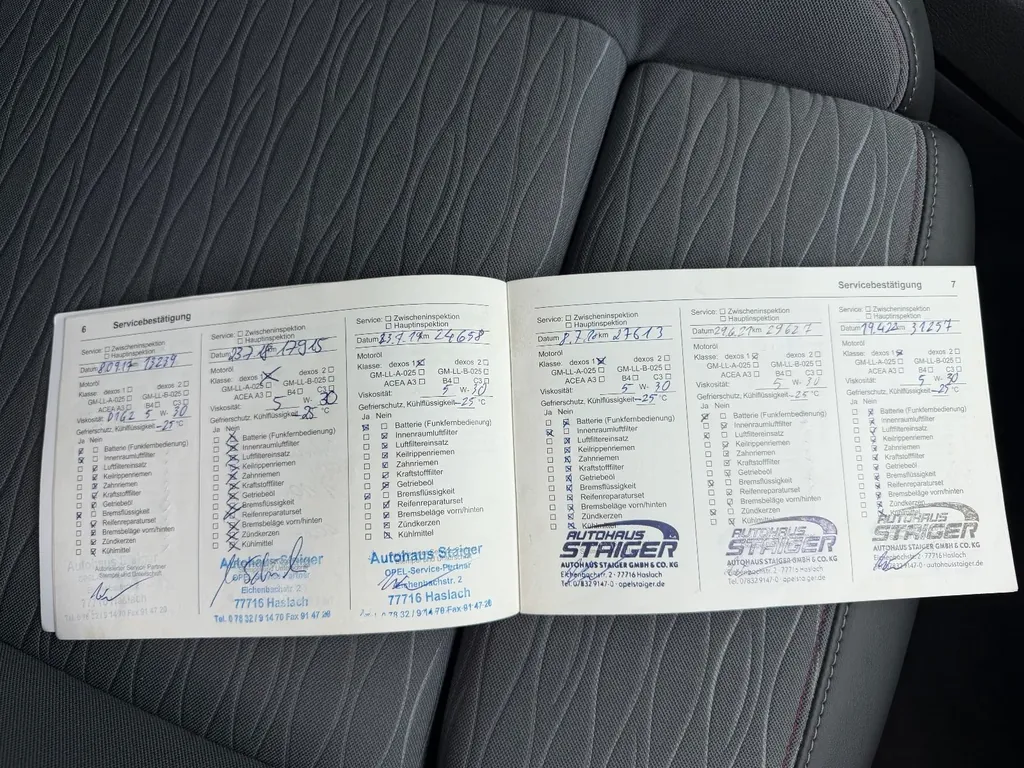 6 Servicebestätigung
Service: ☐ Zwischeninspektion
☐ Hauptinspektion
Datum km 13239
Motoröl
Klasse: dexos 1 ☐ dexos 2 ☐
GM-LL-A-025 ☐ GM-LL-B-025 ☐
ACEA A3 ☐ B4 ☐ C3 ☐
Viskosität: 0162 5 W- 30
Gefrierschutz, Kühlflüssigkeit -25 °C
Ja Nein
Batterie (Funkfernbedienung)
Innenraumluftfilter
Luftfiltereinsatz
Keilrippenriemen
Zahnriemen
Kraftstofffilter
Getriebeöl
Bremsflüssigkeit
Reifenreparaturset
Bremsbeläge vorn/hinten
Zündkerzen
Kühlmittel
77716 Haslach
Service: ☐ Zwischeninspektion
☐ Hauptinspektion
Datum km 17915
Motoröl
Klasse: dexos 1 ☒ dexos 2 ☐
GM-LL-A-025 ☐ GM-LL-B-025 ☐
ACEA A3 ☐ B4 ☐ C3 ☐
Viskosität: 5 W- 30
Gefrierschutz, Kühlflüssigkeit -25 °C
Ja Nein
Batterie (Funkfernbedienung)
Innenraumluftfilter
Luftfiltereinsatz
Keilrippenriemen
Zahnriemen
Kraftstofffilter
Getriebeöl
Bremsflüssigkeit
Reifenreparaturset
Bremsbeläge vorn/hinten
Zündkerzen
Kühlmittel
Autohaus Staiger
OPEL-Service-Partner
Eichenbachstr. 2
77716 Haslach
Tel. 0 78 32 / 9 14 70 Fax 91 47 20
Service: ☐ Zwischeninspektion
☐ Hauptinspektion
Datum km 24658
Motoröl
Klasse: dexos 1 ☒ dexos 2 ☐
GM-LL-A-025 ☐ GM-LL-B-025 ☐
ACEA A3 ☐ B4 ☐ C3 ☐
Viskosität: 5 W- 30
Gefrierschutz, Kühlflüssigkeit -25 °C
Ja Nein
Batterie (Funkfernbedienung)
Innenraumluftfilter
Luftfiltereinsatz
Keilrippenriemen
Zahnriemen
Kraftstofffilter
Getriebeöl
Bremsflüssigkeit
Reifenreparaturset
Bremsbeläge vorn/hinten
Zündkerzen
Kühlmittel
Autohaus Staiger
OPEL-Service-Partner
Eichenbachstr. 2
77716 Haslach
0 78 32 / 9 14 70 Fax 91 47 20
Servicebestätigung 7
Service: ☐ Zwischeninspektion
☐ Hauptinspektion
Datum 8.7.20 km 27613
Motoröl
Klasse: dexos 1 ☒ dexos 2 ☐
GM-LL-A-025 ☐ GM-LL-B-025 ☐
ACEA A3 ☐ B4 ☐ C3 ☐
Viskosität: 5 W- 30
Gefrierschutz, Kühlflüssigkeit -25 °C
Ja Nein
Batterie (Funkfernbedienung)
Innenraumluftfilter
Luftfiltereinsatz
Keilrippenriemen
Zahnriemen
Kraftstofffilter
Getriebeöl
Bremsflüssigkeit
Reifenreparaturset
Bremsbeläge vorn/hinten
Zündkerzen
Kühlmittel
AUTOHAUS
STAIGER
AUTOHAUS STAIGER GMBH & CO. KG
Eichenbachstr. 2 · 77716 Haslach
Tel. 07832 9147-0 · opelstaiger.de
Service: ☐ Zwischeninspektion
☐ Hauptinspektion
Datum 29.6.21 km 29627
Motoröl
Klasse: dexos 1 ☒ dexos 2 ☐
GM-LL-A-025 ☐ GM-LL-B-025 ☐
ACEA A3 ☐ B4 ☐ C3 ☐
Viskosität: 5 W- 30
Gefrierschutz, Kühlflüssigkeit -25 °C
Ja Nein
Batterie (Funkfernbedienung)
Innenraumluftfilter
Luftfiltereinsatz
Keilrippenriemen
Zahnriemen
Kraftstofffilter
Getriebeöl
Bremsflüssigkeit
Reifenreparaturset
Bremsbeläge vorn/hinten
Zündkerzen
Kühlmittel
AUTOHAUS
STAIGER
AUTOHAUS STAIGER GMBH & CO. KG
Eichenbachstr. 2 · 77716 Haslach
Tel. 07832 9147-0 · opelstaiger.de
Service: ☐ Zwischeninspektion
☐ Hauptinspektion
Datum 19.4.22 km 31257
Motoröl
Klasse: dexos 1 ☒ dexos 2 ☐
GM-LL-A-025 ☐ GM-LL-B-025 ☐
ACEA A3 ☐ B4 ☐ C3 ☐
Viskosität: 5 W- 30
Gefrierschutz, Kühlflüssigkeit -25 °C
Ja Nein
Batterie (Funkfernbedienung)
Innenraumluftfilter
Luftfiltereinsatz
Keilrippenriemen
Zahnriemen
Kraftstofffilter
Getriebeöl
Bremsflüssigkeit
Reifenreparaturset
Bremsbeläge vorn/hinten
Zündkerzen
AUTOHAUS
STAIGER
AUTOHAUS STAIGER GMBH & CO. KG
Eichenbachstr. 2 · 77716 Haslach
Tel. 07832 9147-0 · autohausstaiger.de